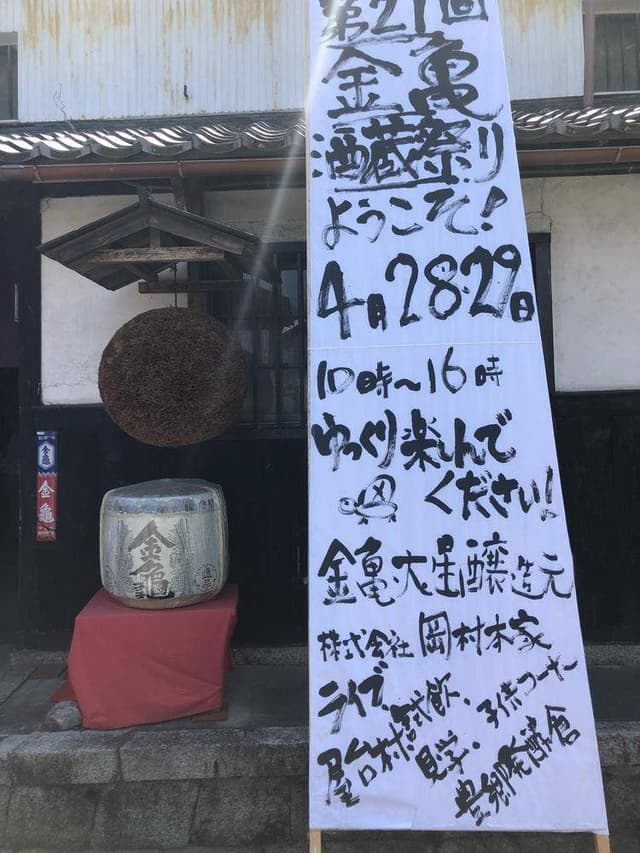 第21回
金亀
酒蔵祭り
ようこそ!
4月28.29日
10時~16時
ゆっくり楽しんで
ください!
金亀大星醸造元
株式会社 岡村本家
ライブ、
屋台村、試飲、
見学、子供コーナー
豊郷発酵倉
金亀
金亀
金亀